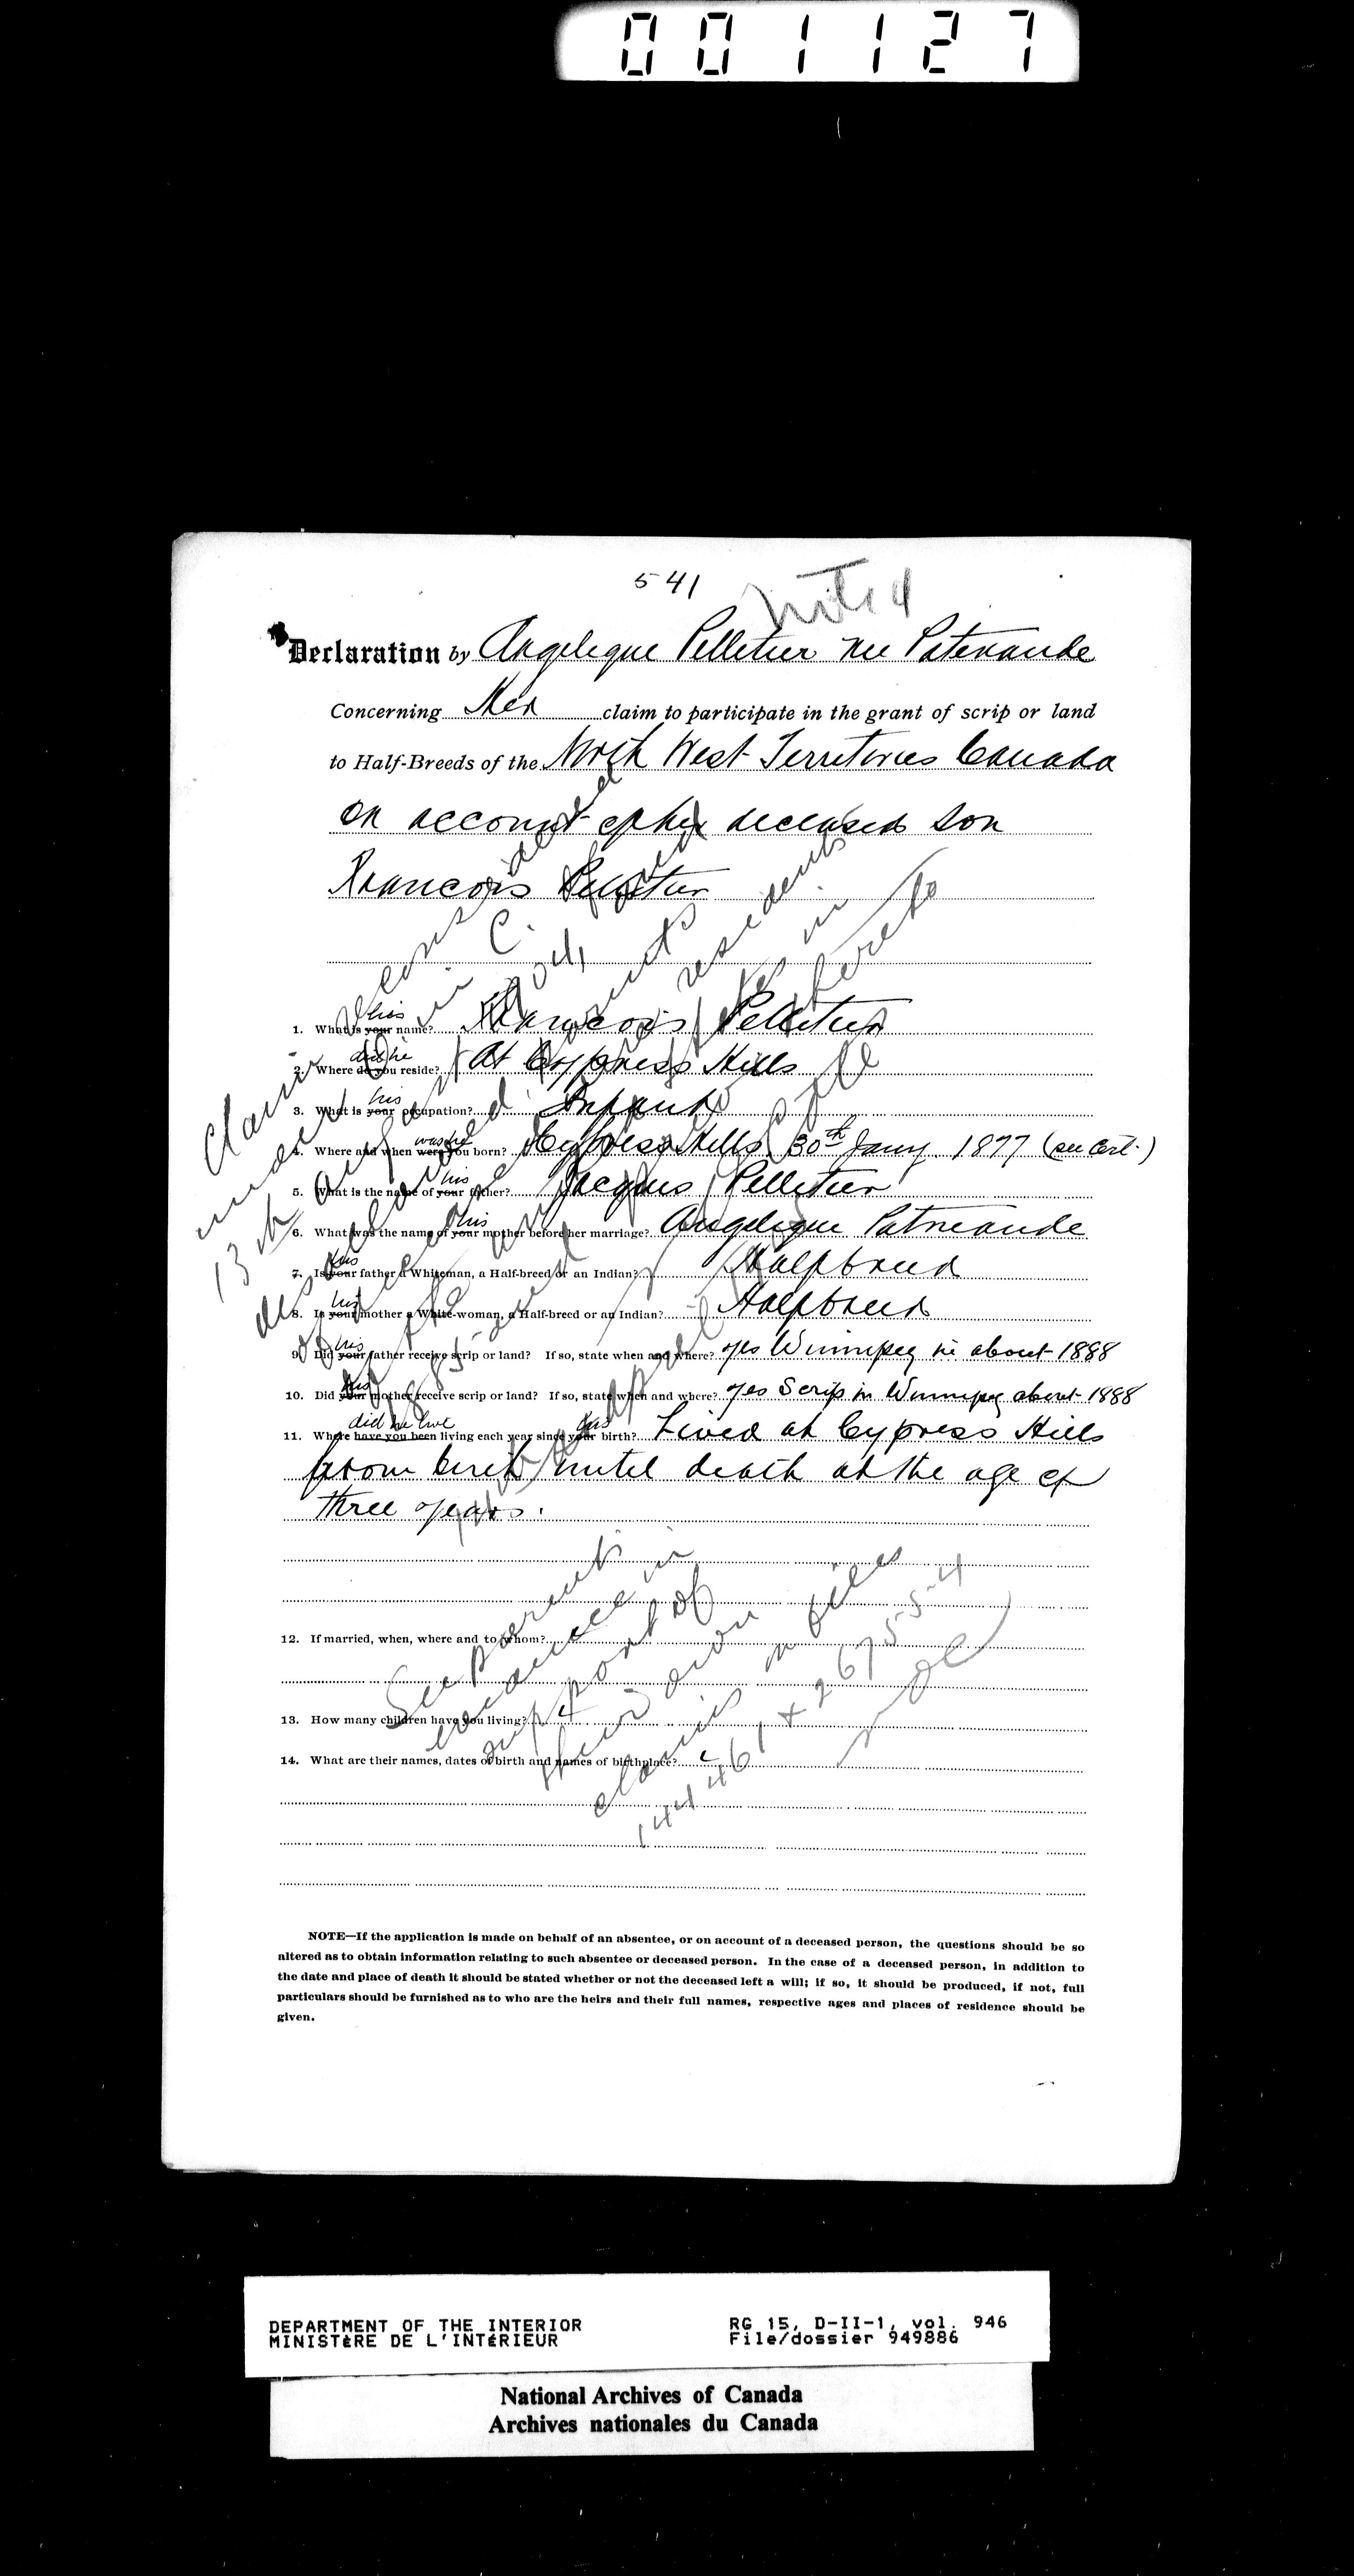 001127
541
noted
Declaration by Angelique Pelletier nee Patenaude
Concerning Her claim to participate in the grant of scrip or land
to Half-Breeds of the North West Territories Canada
on account of her deceased son
Francois Pelletier
1. What is your his name? Francois Pelletier
2. Where do you did he reside? At Cypress Hills
3. What is your his occupation? Infant
4. Where and when were you was he born? Cypress Hills 30th Jany. 1877 (see Cert.)
5. What is the name of your his father? Jacques Pelletier
6. What was the name of your his mother before her marriage? Angelique Patneaude
7. Is your his father a Whiteman, a Half-breed or an Indian? Halfbreed
8. Is your his mother a White-woman, a Half-breed or an Indian? Halfbreed
9. Did your his father receive scrip or land? If so, state when and where? yes Winnipeg in about 1888
10. Did your his mother receive scrip or land? If so, state when and where? yes Scrip in Winnipeg about 1888
11. Where have you been did he live living each year since your his birth? Lived at Cypress Hills
from birth until death at the age of
three years.
12. If married, when, where and to whom?
13. How many children have you living?
14. What are their names, dates of birth and names of birthplace?
Claim reconsidered
under in C. of
13th Aug 1904,
residents
in
hereto
1885
See parents
evidence in
support of
their own
claims on files
144461 & 267554
NOTE—If the application is made on behalf of an absentee, or on account of a deceased person, the questions should be so
altered as to obtain information relating to such absentee or deceased person. In the case of a deceased person, in addition to
the date and place of death it should be stated whether or not the deceased left a will; if so, it should be produced, if not, full
particulars should be furnished as to who are the heirs and their full names, respective ages and places of residence should be
given.
DEPARTMENT OF THE INTERIOR
MINISTÈRE DE L'INTÉRIEUR
RG 15, D-II-1, vol. 946
File/dossier 949886
National Archives of Canada
Archives nationales du Canada